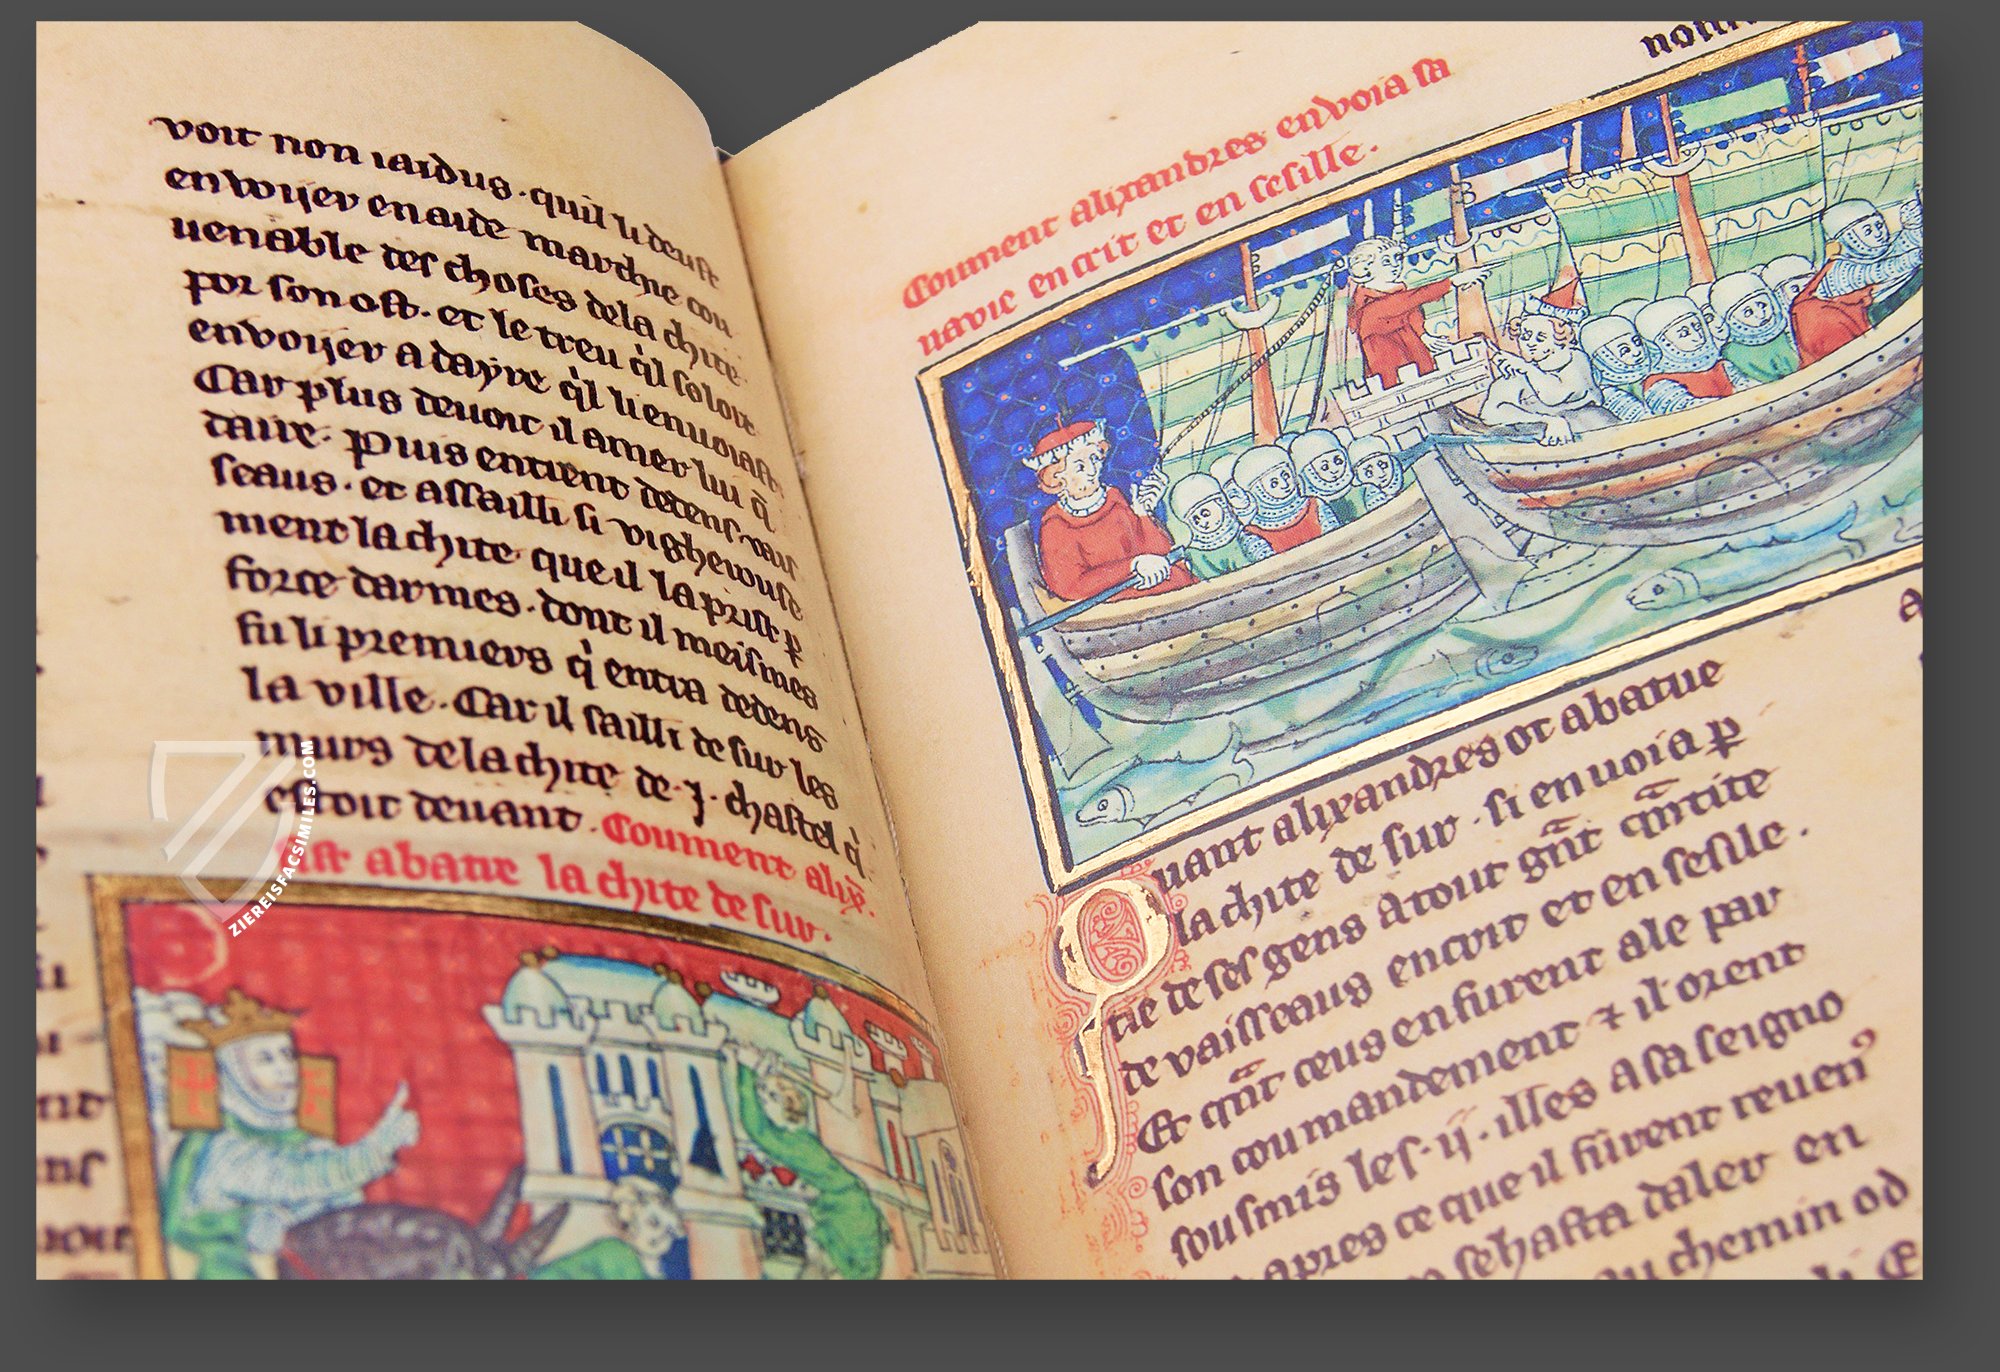 voit non iardus · quil li deust
envoiier en aide marchne cou
uenable des choses dela chite·
por son ost · et le treu q̓l soloit
envoiier a dayre q̓l li enuoiast·
Car plus deuoit il amer lui q̓
daire· Puis entrent dedens vais
seaus · et assailli si vigherouse
ment la chite que il la prist ꝑ
force darmes · dont il meismes
fu li premiers q̓ entra dedens
la ville · Car il sailli de sur les
murs de la chite de · j · chastel q̓
estoit deuant · Coument alix̄·
est abatu la chite de sur ·
Coument alixandres envoia sa
navie en crit et en sesille ·
Quant alixandres ot abatue
la chite de sur · si en uoia ꝑ
tie de ses gens a tout gn̄t qn̄tite
de vaisseaus en crit et en sesile ·
Et qn̄t ceus en furent ale par
son coumandement ⁊ il orent
sousmis les · ij · illes a sa seigno
apres ce que il furent reuen
sehasta daler en
chemin od
ZIEREISFACSIMILES.COM